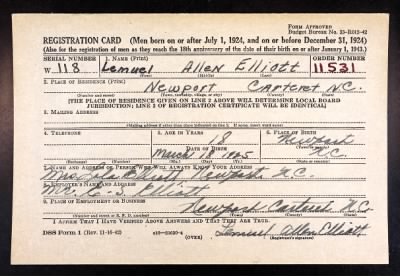 FORM APPROVED
Budget Bureau No. 33-R012-42
REGISTRATION CARD—(Men born on or after July 1, 1924, and on or before December 31, 1924)
(Also for the registration of men as they reach the 18th anniversary of the date of their birth on or after January 1, 1943.)
SERIAL NUMBER 1. NAME (Print) ORDER NUMBER
W 118 Lemuel Allen Elliott 11531
(First) (Middle) (Last)
2. PLACE OF RESIDENCE (Print)
Newport Carteret N.C.
(Number and street) (Town, township, village, or city) (County) (State)
[THE PLACE OF RESIDENCE GIVEN ON LINE 2 ABOVE WILL DETERMINE LOCAL BOARD
JURISDICTION; LINE 2 OF REGISTRATION CERTIFICATE WILL BE IDENTICAL]
3. MAILING ADDRESS
[Mailing address if other than place indicated on line 2. If same, insert word same]
4. TELEPHONE 5. AGE IN YEARS 6. PLACE OF BIRTH
18 Newport
DATE OF BIRTH
March 18 N.C.
(Exchange) (Number) (Mo.) (Day) (Yr.) (State or country)
7. NAME AND ADDRESS OF PERSON WHO WILL ALWAYS KNOW YOUR ADDRESS
Elliott Newport N.C.
8. EMPLOYER'S NAME AND ADDRESS
Mr. S. Elliott
9. PLACE OF EMPLOYMENT OR BUSINESS
Newport Carteret N.C.
(Number and street or R. F. D. number) (Town) (County) (State)
I AFFIRM THAT I HAVE VERIFIED ABOVE ANSWERS AND THAT THEY ARE TRUE.
DSS Form 1 (Rev. 11-16-42) (OVER) Lemuel Allen Elliott
(Registrant's signature)